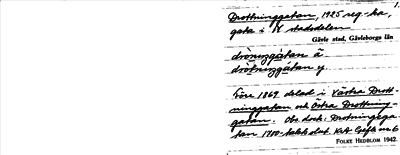 1.
Drottninggatan, 1925 reg. ka,
gata i K stadsdelen
Gävle stad, Gävleborgs län
drò̀ninggatan ä
drò̀tninggatan y.
Före 1869 delad i Västra Drott-
ninggatan och Östra Drottning-
gatan. Obs. dock: Drotningega-
tan 1700-talets slut. KrA Gefle nr 6
FOLKE HEDBLOM 1942.